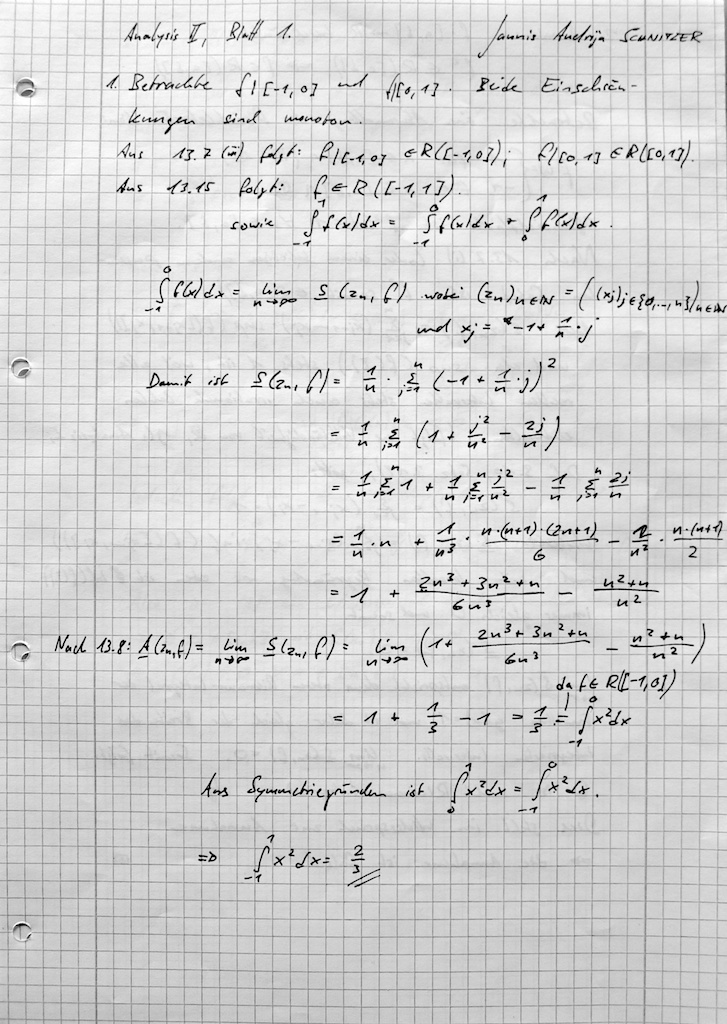 Analysis II, Blatt 1. Jannis Andrija SCHNITZER
1. Betrachte f|[-1,0] und f|[0,1]. Beide Einschrän-
kungen sind monoton.
Aus 13.7 (iii) folgt: f|[-1,0] ∈ R([-1,0]); f|[0,1] ∈ R([0,1]).
Aus 13.15 folgt: f ∈ R([-1,1]).
sowie ∫_{-1}^{1} f(x)dx = ∫_{-1}^{0} f(x)dx + ∫_{0}^{1} f(x)dx.
∫_{-1}^{0} f(x)dx = lim_{n→∞} S(zn, f) wobei (zn)_{n∈ℕ} = ((xj)_{j∈{0,...,n}})_{n∈ℕ}
und xj = -1 + 1/n · j
Damit ist S(zn, f) = 1/n · Σ_{j=1}^{n} (-1 + 1/n · j)^2
= 1/n Σ_{j=1}^{n} (1 + j^2/n^2 - 2j/n)
= 1/n Σ_{j=1}^{n} 1 + 1/n Σ_{j=1}^{n} j^2/n^2 - 1/n Σ_{j=1}^{n} 2j/n
= 1/n · n + 1/n^3 · n·(n+1)·(2n+1)/6 - 2/n^2 · n·(n+1)/2
= 1 + 2n^3 + 3n^2 + n/6n^3 - n^2+n/n^2
Nach 13.8: A(zn,f) = lim_{n→∞} S(zn, f) = lim_{n→∞} (1 + 2n^3 + 3n^2 + n/6n^3 - n^2+n/n^2)
da f ∈ R([-1,0])
= 1 + 1/3 - 1 = 1/3 = ∫_{-1}^{0} x^2 dx
Aus Symmetriegründen ist ∫_{0}^{1} x^2 dx = ∫_{-1}^{0} x^2 dx.
⇒ ∫_{-1}^{1} x^2 dx = 2/3